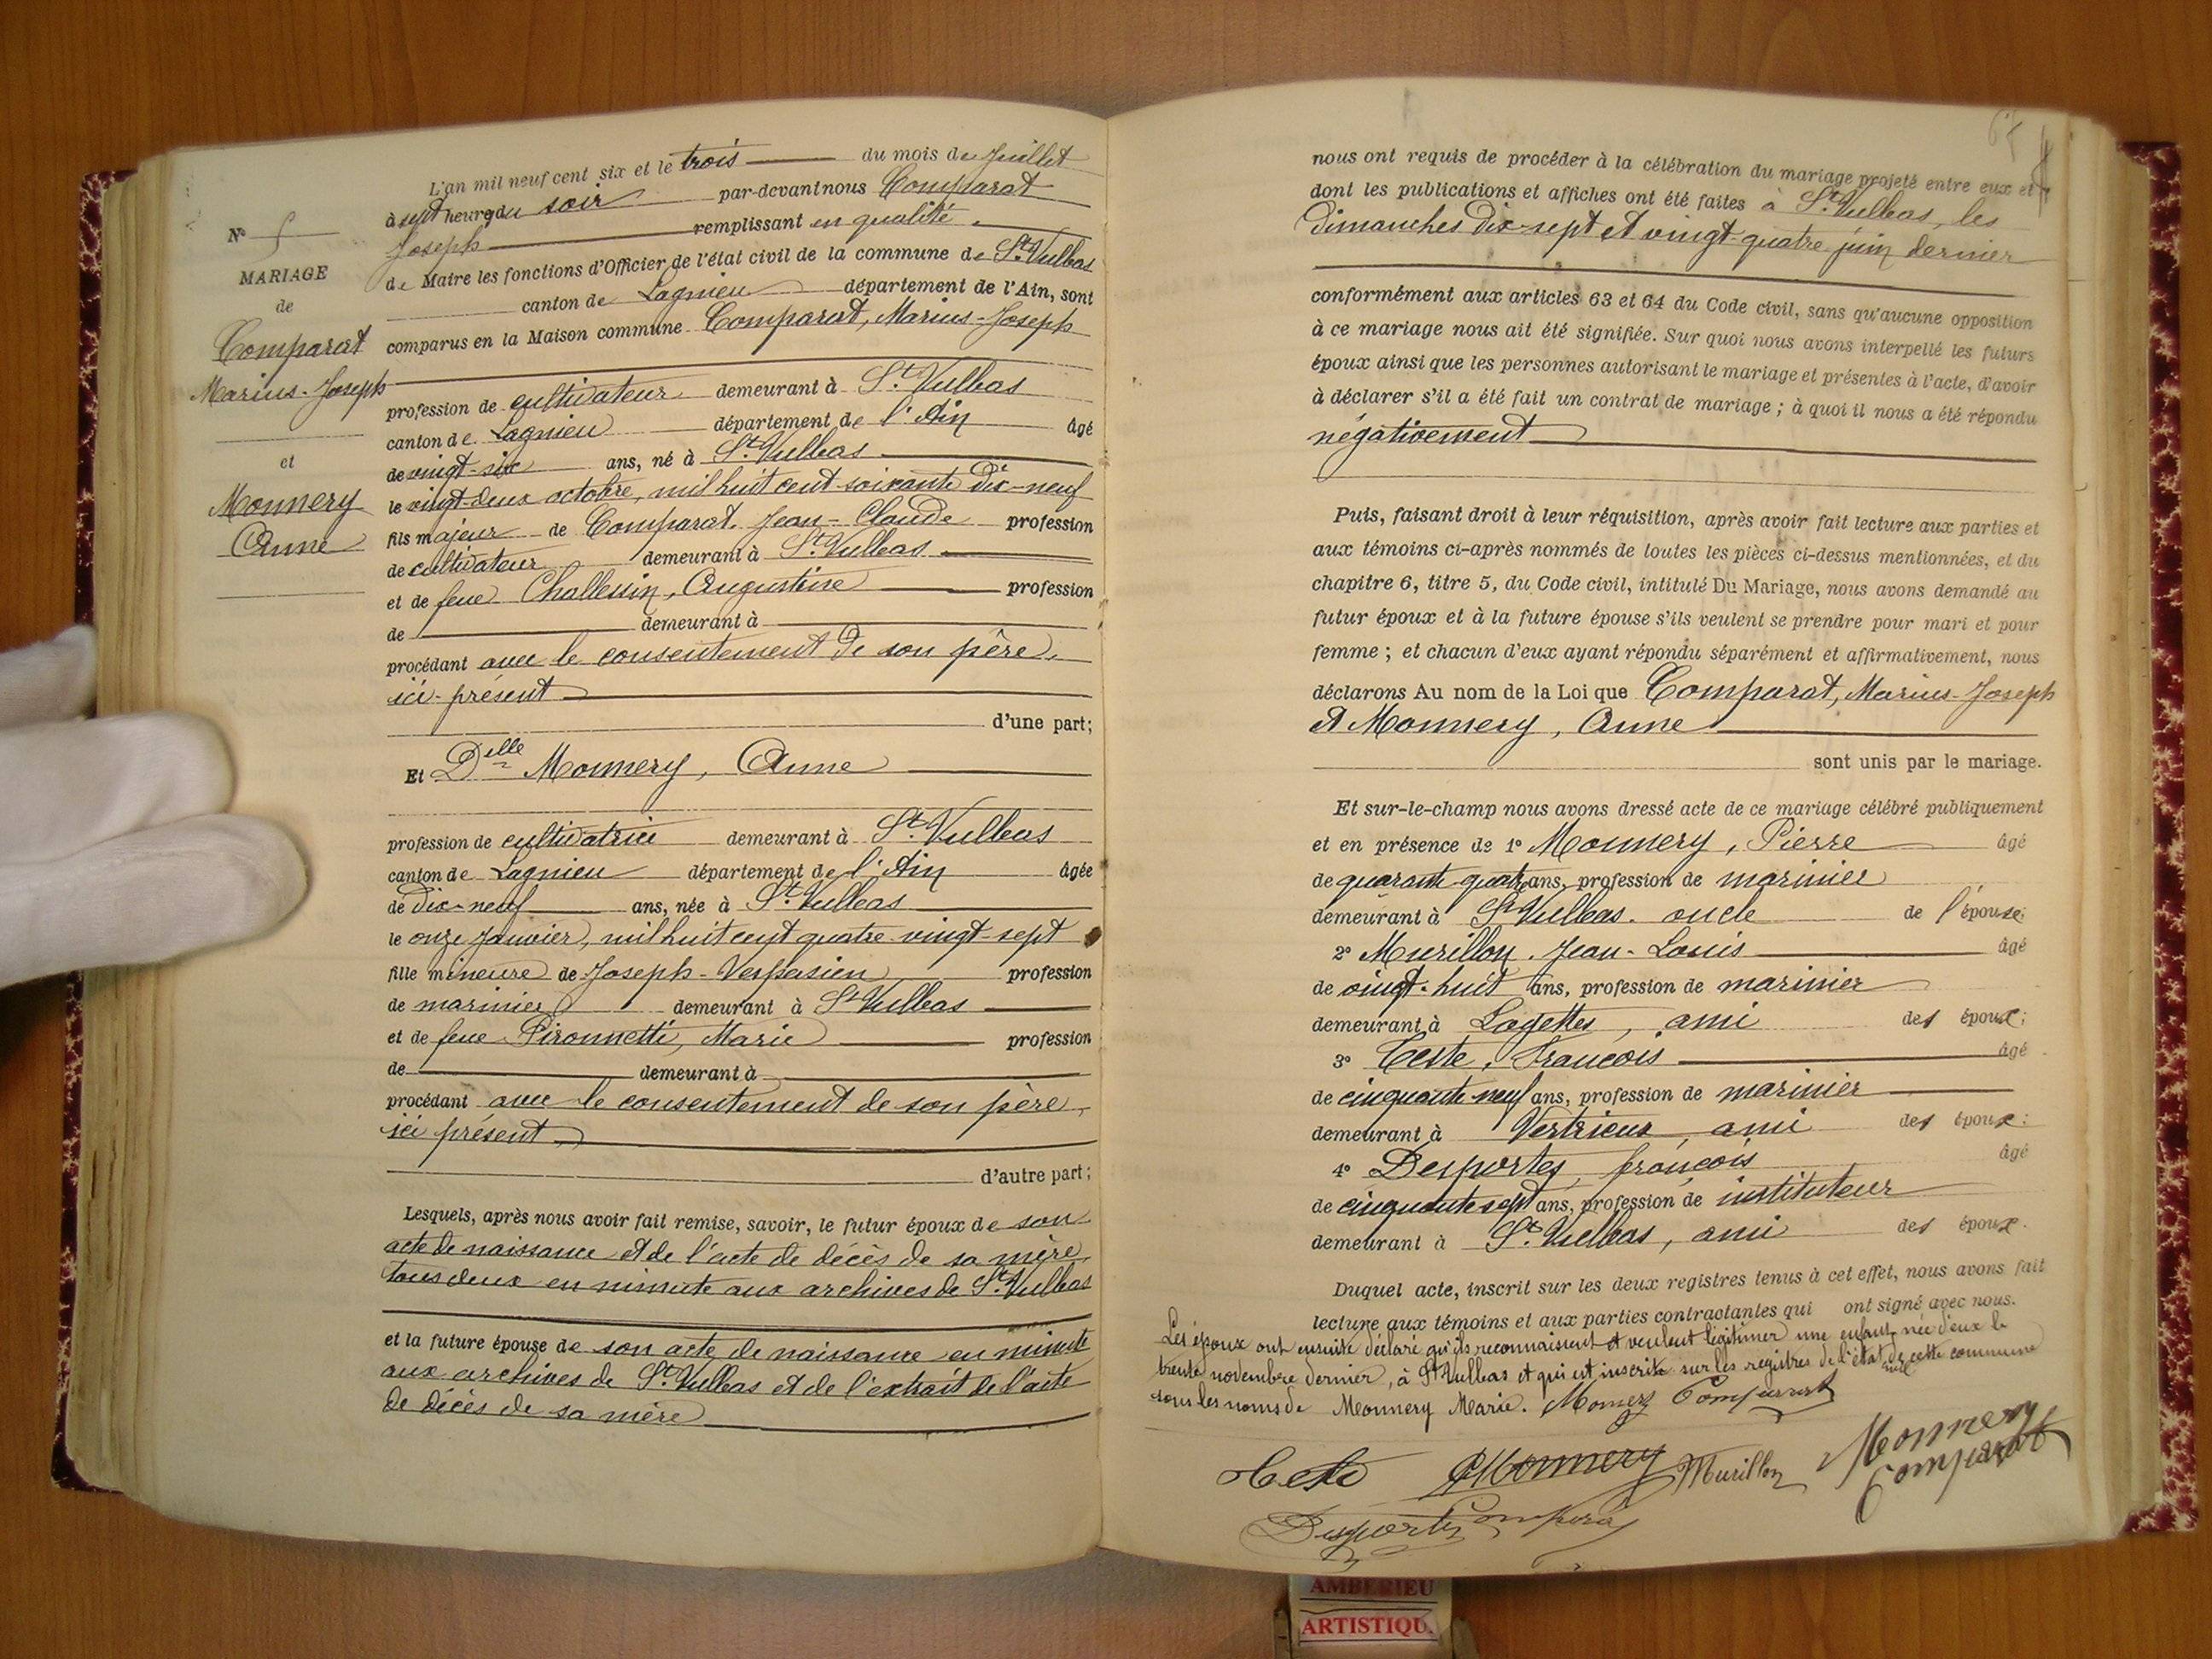 L'an mil neuf cent six et le trois du mois de Juillet
à sept heures du soir par-devant nous Comparat
Joseph remplissant en qualité
de Maire les fonctions d'Officier de l'état civil de la commune de St. Vulbas
canton de Lagnieu département de l'Ain, sont
comparus en la Maison commune Comparat, Marius-Joseph
N° 5
MARIAGE
de
Comparat
Marius-Joseph
et
Monnery
Anne
profession de cultivateur demeurant à St. Vulbas
canton de Lagnieu département de l'Ain âgé
de vingt-six ans, né à St. Vulbas
le vingt-deux octobre, mil huit cent soixante dix-neuf
fils majeur de Comparat, Jean-Claude profession
de cultivateur demeurant à St. Vulbas
et de feue Challessin, Augustine profession
de demeurant à
procédant avec le consentement de son père,
ici-présent
d'une part;
Et Delle Monnery, Anne
profession de cultivatrice demeurant à St. Vulbas
canton de Lagnieu département de l'Ain âgée
de dix-neuf ans, née à St. Vulbas
le onze Janvier, mil huit cent quatre-vingt-sept
fille mineure de Joseph-Vespasien profession
de marinier demeurant à St. Vulbas
et de feue Pironnetti, Marie profession
de demeurant à
procédant avec le consentement de son père,
ici présent
d'autre part;
Lesquels, après nous avoir fait remise, savoir, le futur époux de son
acte de naissance et de l'acte de décès de sa mère
tous deux en minute aux archives de St. Vulbas
et la future épouse de son acte de naissance en minute
aux archives de St. Vulbas et de l'extrait de l'acte
de décès de sa mère
65
nous ont requis de procéder à la célébration du mariage projeté entre eux et
dont les publications et affiches ont été faites à St. Vulbas, les
dimanches dix-sept et vingt-quatre juin dernier
conformément aux articles 63 et 64 du Code civil, sans qu'aucune opposition
à ce mariage nous ait été signifiée. Sur quoi nous avons interpellé les futurs
époux ainsi que les personnes autorisant le mariage et présentes à l'acte, d'avoir
à déclarer s'il a été fait un contrat de mariage; à quoi il nous a été répondu
négativement
Puis, faisant droit à leur réquisition, après avoir fait lecture aux parties et
aux témoins ci-après nommés de toutes les pièces ci-dessus mentionnées, et du
chapitre 6, titre 5, du Code civil, intitulé Du Mariage, nous avons demandé au
futur époux et à la future épouse s'ils veulent se prendre pour mari et pour
femme; et chacun d'eux ayant répondu séparément et affirmativement, nous
déclarons Au nom de la Loi que Comparat, Marius-Joseph
et Monnery, Anne
sont unis par le mariage.
Et sur-le-champ nous avons dressé acte de ce mariage célébré publiquement
et en présence de 1° Monnery, Pierre âgé
de quarante-quatre ans, profession de marinier
demeurant à St. Vulbas. oncle de l'épouse;
2° Murillon, Jean-Louis âgé
de vingt-huit ans, profession de marinier
demeurant à Lagettes, ami des époux;
3° Teste, François âgé
de cinquante neuf ans, profession de marinier
demeurant à Vertrieux, ami des époux:
4° Desportes, françois âgé
de cinquante sept ans, profession de instituteur
demeurant à St. Vulbas, ami des époux.
Duquel acte, inscrit sur les deux registres tenus à cet effet, nous avons fait
lecture aux témoins et aux parties contractantes qui ont signé avec nous.
Les époux ont ensuite déclaré qu'ils reconnaissent et veulent légitimer une enfant née d'eux le
trente novembre dernier, à St Vulbas et qui est inscrite sur les registres de l'état civil de cette commune
sous les noms de Monnery Marie. Monnery Comparat
Teste Monnery Murillon Monnery
Comparat
Desportes Comparat
AMBERIEU
ARTISTIQU